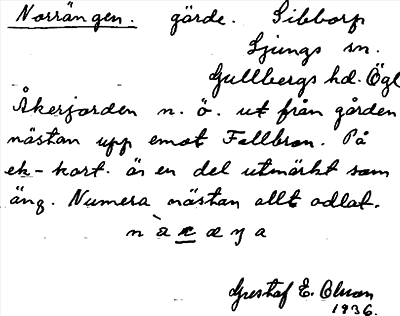 Norrängen. gärde. Sibborp
Ljungs sn.
Gullbergs hd. Ögl
Åkerjorden n. ö. ut från gården
nästan upp emot Fallbron. På
ek-kort. är en del utmärkt som
äng. Numera nästan allt odlat.
Gustaf E. Olsson
1936.